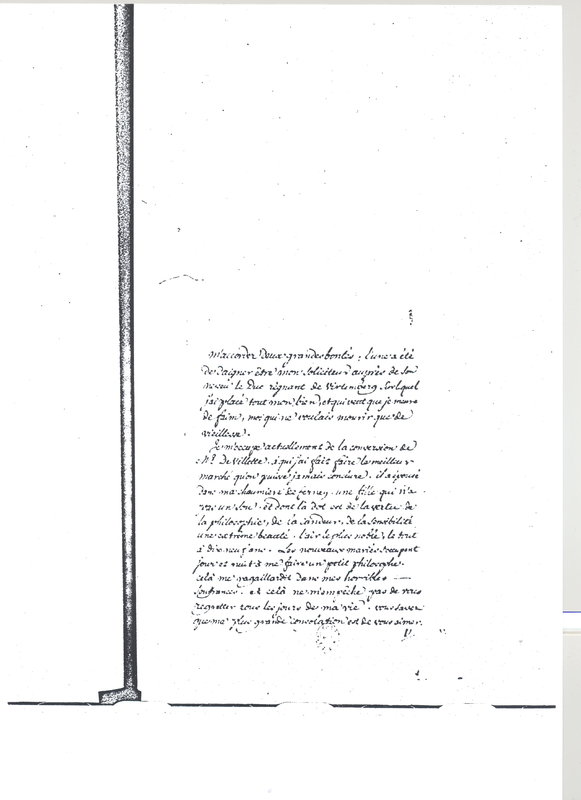 m'accorder deux grandes bontés; l'une a été
de daigner être mon soliciteur auprès de son
neveu le Duc régnant de Virtemberg sur lequel
j'ai placé tout mon bien et qui veut que je meure
de faim, moi qui ne voulais mourir que de
vieillesse.
Je m'occupe actuellement de la conversion de
Mr. De Villette. à qui j'ai fait faire le meilleur
marché qu'on puisse jamais conclure. il a épousé
dans ma chaumière de ferney. une fille qui n'a
pas un sou. et dont la dot est de la vertu de
la philosophie, de la candeur, de la sensibilité
une extrême beauté. l'air le plus noble, le tout
à dix neuf ans. Les nouveaux mariés s'occupent
jour et nuit à me faire un petit philosophe.
celà me ragaillardit dans mes horribles
souffrances. et celà ne m'empêche pas de vous
regretter tous les jours de ma vie. vous savez
que ma plus grande consolation est de vous aimer.
V.